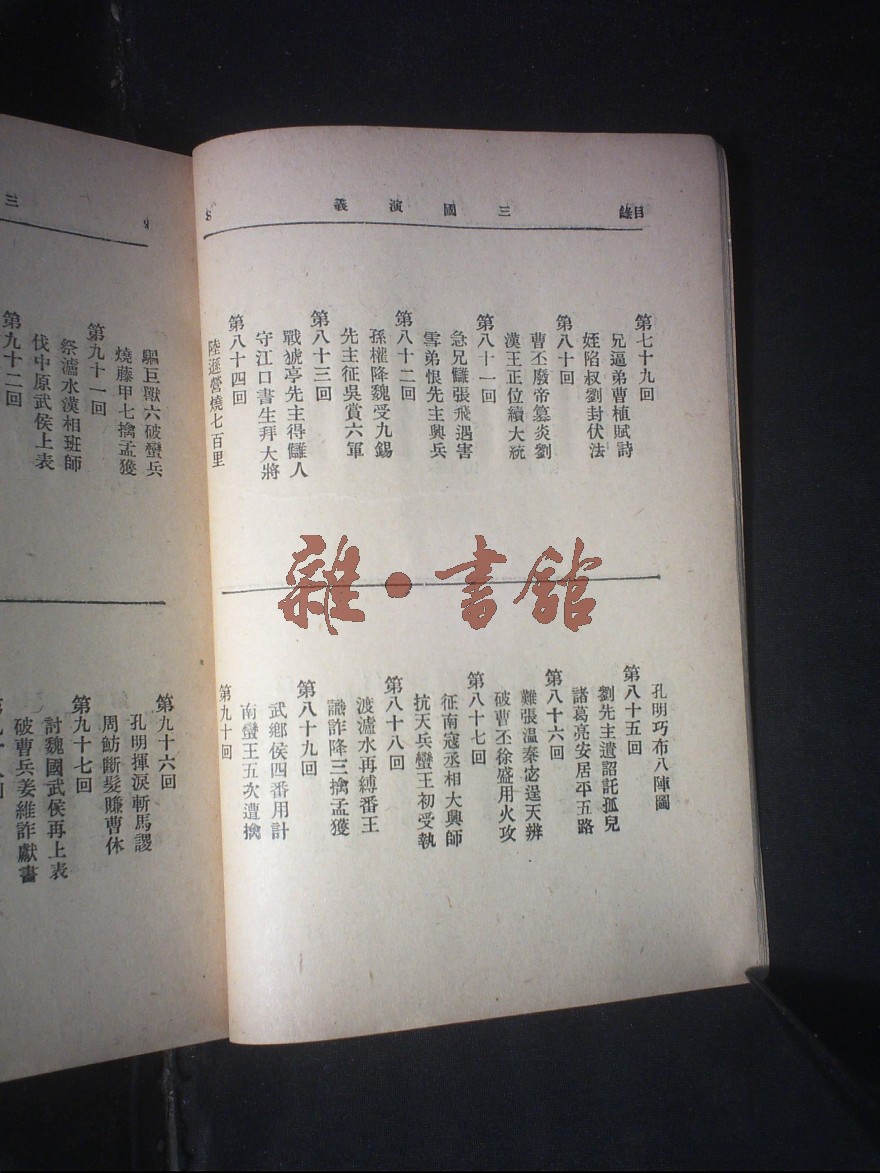 目錄
三國演義
8
第七十九回
兄逼弟曹植賦詩
姪陷叔劉封伏法
第八十回
曹丕廢帝篡炎劉
漢王正位續大統
第八十一回
急兄讎張飛遇害
雪弟恨先主興兵
第八十二回
孫權降魏受九錫
先主征吳賞六軍
第八十三回
戰猇亭先主得讎人
守江口書生拜大將
第八十四回
陸遜營燒七百里
孔明巧布八陣圖
第八十五回
劉先主遺詔託孤兒
諸葛亮安居平五路
第八十六回
難張溫秦宓逞天辨
破曹丕徐盛用火攻
第八十七回
征南寇丞相大興師
抗天兵蠻王初受執
第八十八回
渡瀘水再縛番王
識詐降三擒孟獲
第八十九回
武鄉侯四番用計
南蠻王五次遭擒
第九十回
雜·書館
三
驅巨獸六破蠻兵
燒藤甲七擒孟獲
第九十一回
祭瀘水漢相班師
伐中原武侯上表
第九十二回
第九十六回
孔明揮淚斬馬謖
周魴斷髮賺曹休
第九十七回
討魏國武侯再上表
破曹兵姜維詐獻書